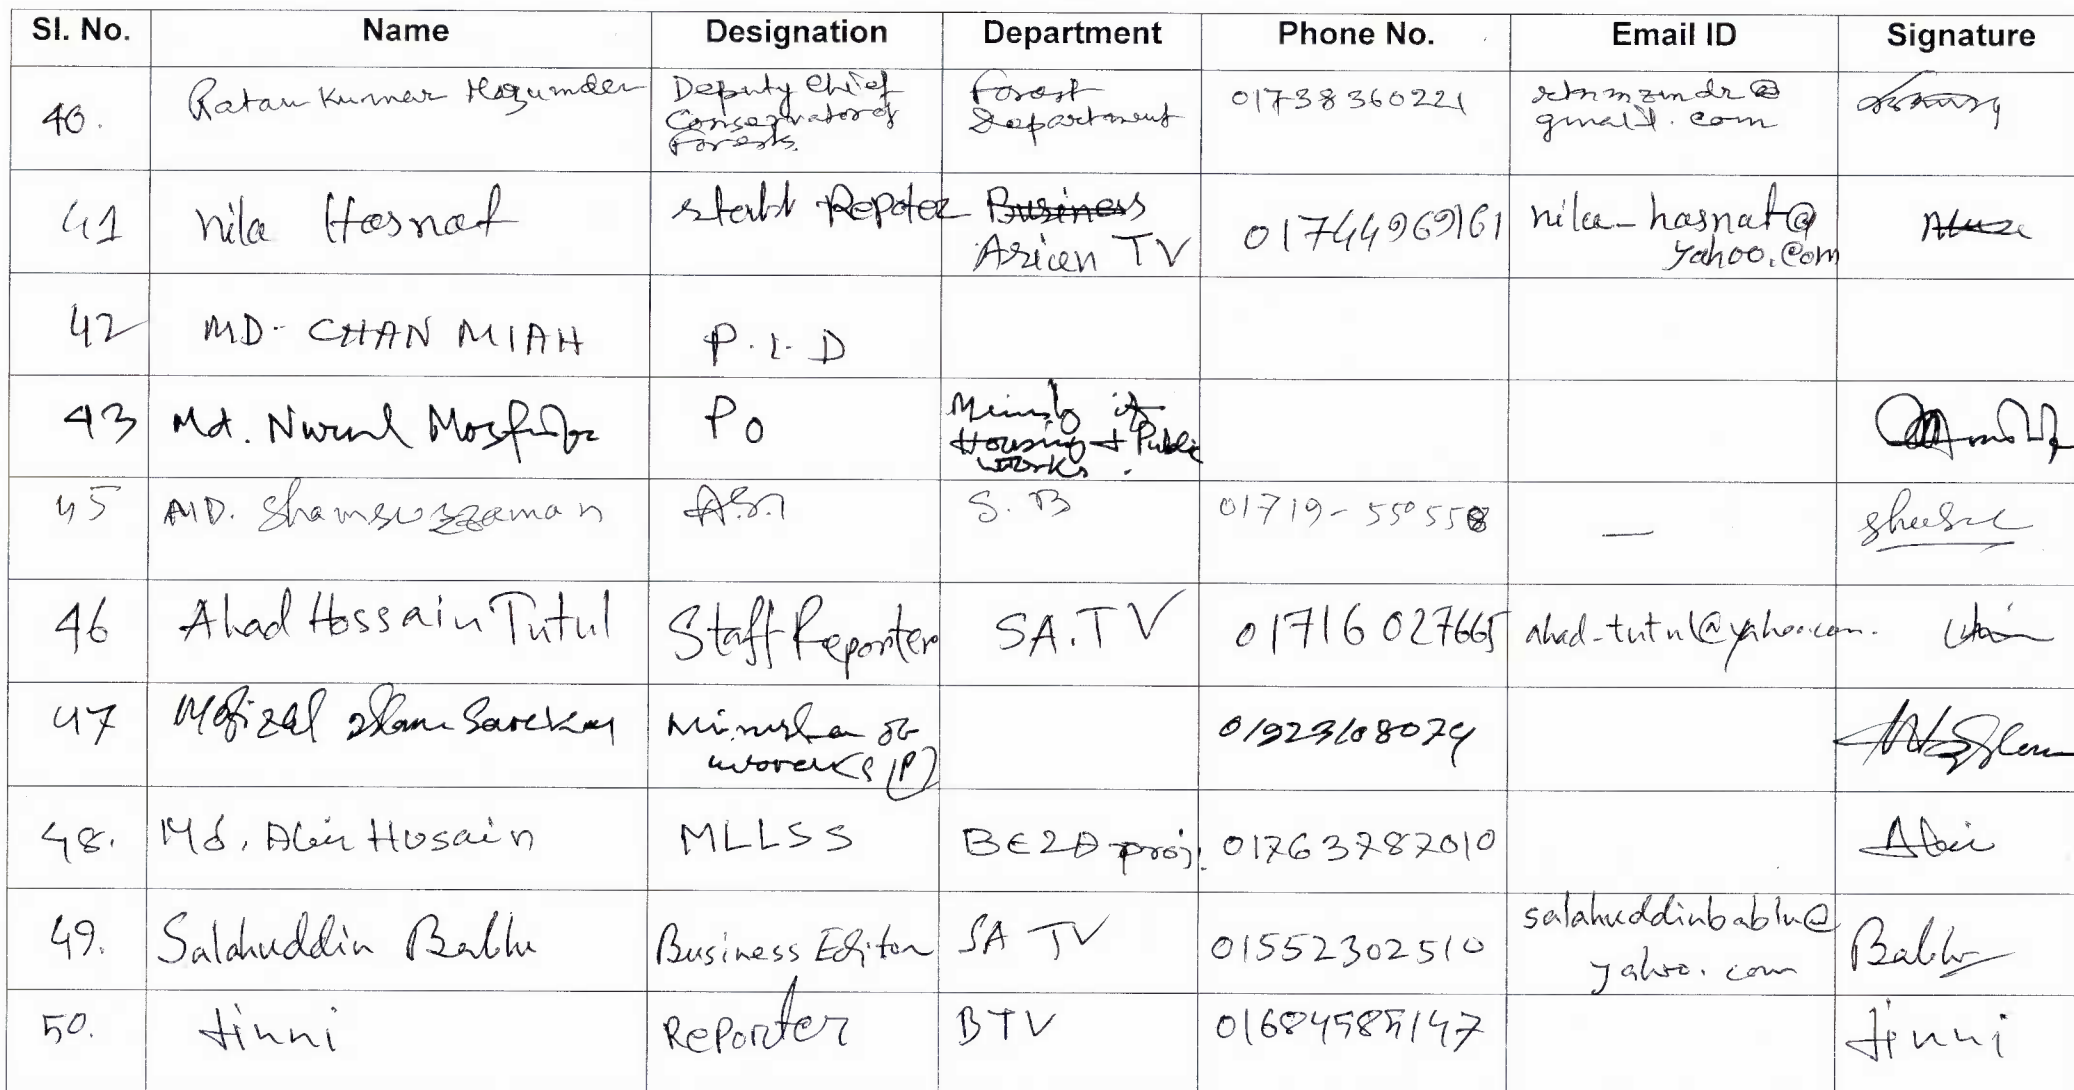 Sl. No. Name Designation Department Phone No. Email ID Signature
40. Ratan Kumar Mazumder Deputy Chief Conservator of Forests. Forest Department 01738360221 gmail.com
41 Nila Hasnat Repoter Business Asian TV 01744969161 nila_hasnat@ yahoo.com
42 MD. CHAN MIAH P.I.D
43 Md. Nurul PO Housing & Public works.
45 MD. Shamsuzzaman A.S.I S.B 01719-550558 —
46 Ahad Hossain Tutul Staff Reporter SA.TV 01716027665 ahad_tutul@yahoo.com.
47 Mofizal Islam Sarckar works (P)
48. Md. Abir Hosain MLLSS proj. 01763787010 Abir
49. Salahuddin Bablu Business Editor SA TV 01552302510 salahuddinbablu@ yahoo.com Bablu
50. Jinni RePorter BTV 01684585147 Jinni